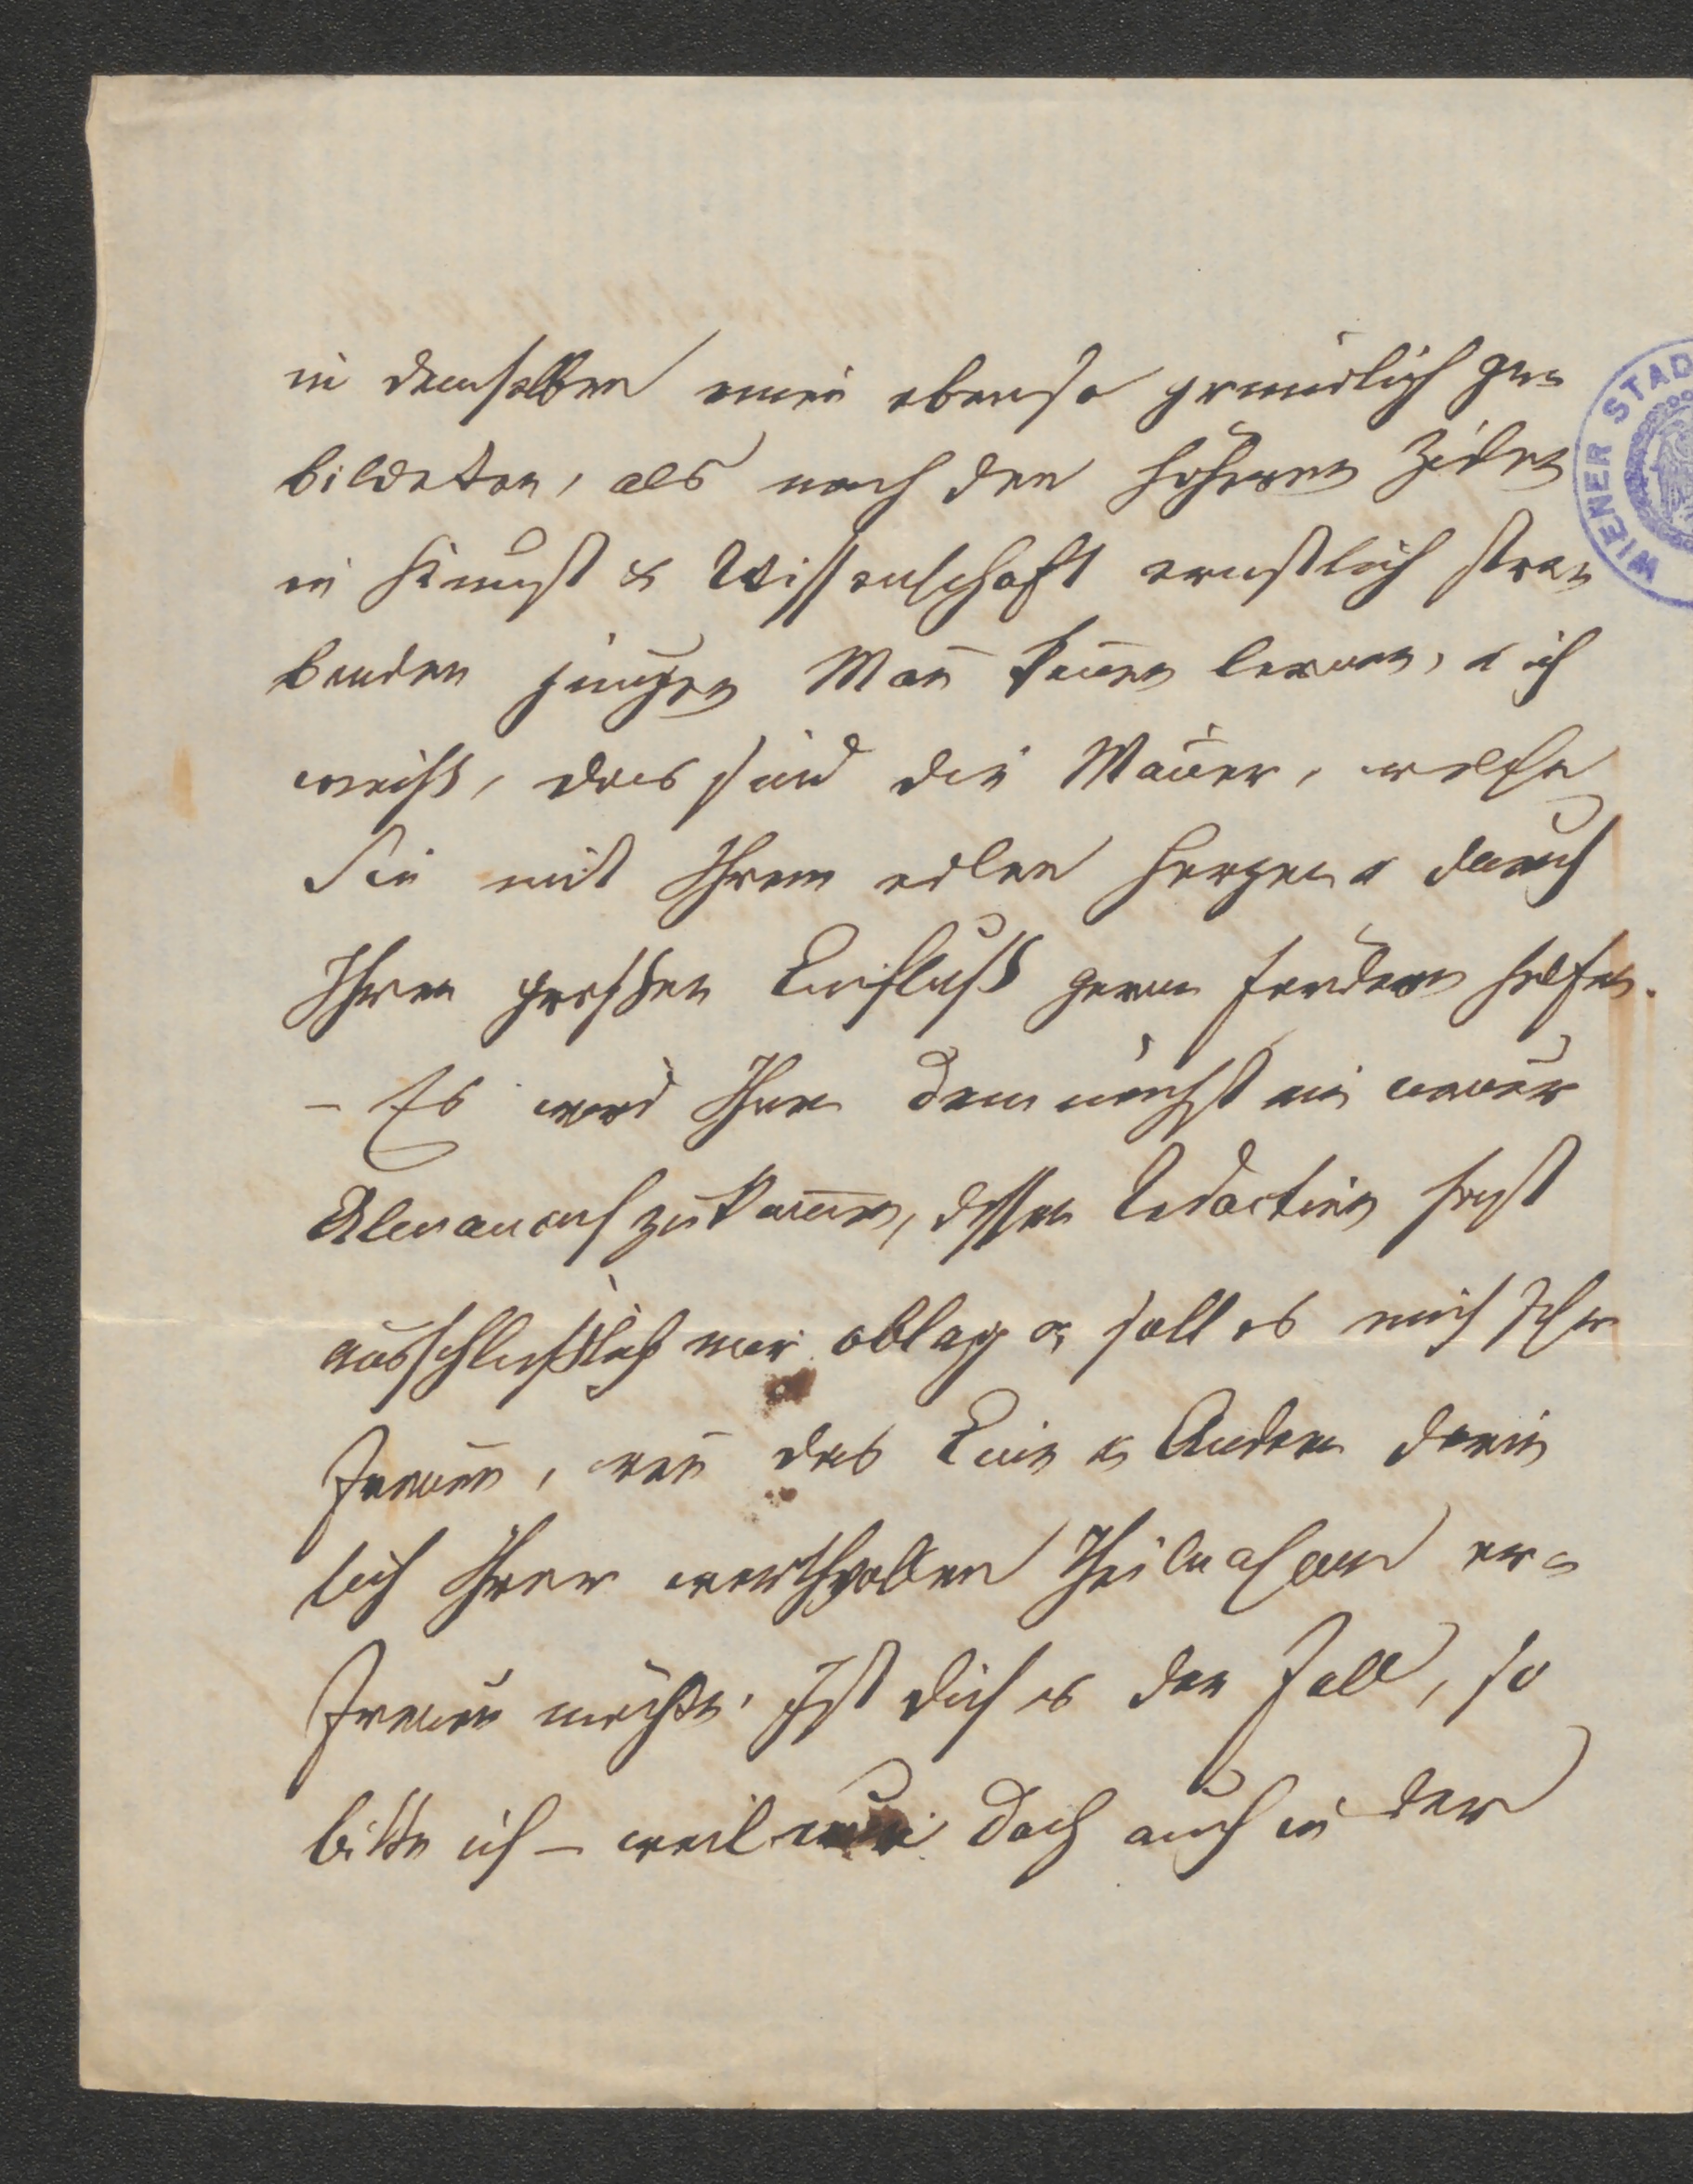 in demselben einen ebenso gründlich ge-
bildeten, als nach den höheren Zielen
in Kunst & Wissenschaft ernstlich stre-
benden jungen Man̄ ken̄en lernen, & ich
weiß, das sind die Män̄er, welche
Sie mit Ihrem edlen Herzen & durch
Ihren großen Einfluß gern fördern helfen.
– Es wird Ihnen demnächst ein neuer
Almanach zukom̄en, dessen Redaction fast
ausschließlich mir oblag & soll es mich sehr
freuen, wen̄ das Eine & Andere darin
sich Ihrer werthvollen Theilnahme er-
freuen möchte. Ist dieß es der Fall, so
bitte ich – weil mir doch auch in der
WIENER STAD